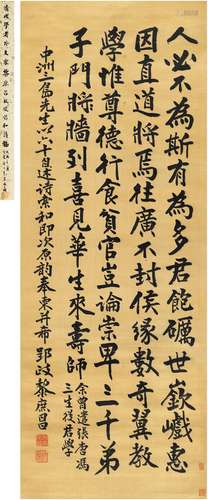 人必不為斯有為多君飽礪世嶔巇惠
因直道將焉往廣不封侯緣數奇翼教
學惟尊德行食貧官豈論崇卑三千弟
子門將牆列喜見華生來壽師
余曾遣張馮
三生從君學
中洲三島先生以八十自述詩索和即次原韵奉柬并希郢政黎庶昌